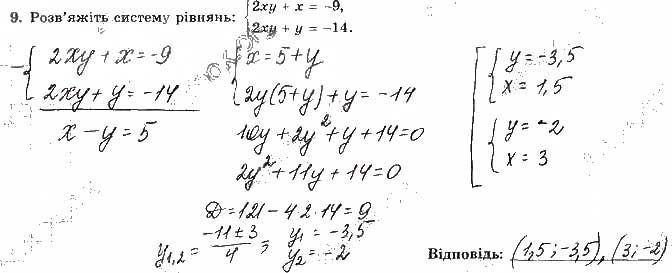 9. Розв'яжіть систему рівнянь: { 2xy + x = -9,
2xy + y = -14.
- { 2xy + x = -9
2xy + y = -14
x - y = 5
{ x = 5 + y
2y(5+y) + y = -14
10y + 2y² + y + 14 = 0
2y² + 11y + 14 = 0
D = 121 - 4·2·14 = 9
y₁,₂ = (-11 ± 3)/4 = y₁ = -3,5
y₂ = -2
[ { y = -3,5
x = 1,5
{ y = -2
x = 3
Відповідь: (1,5; -3,5), (3; -2)